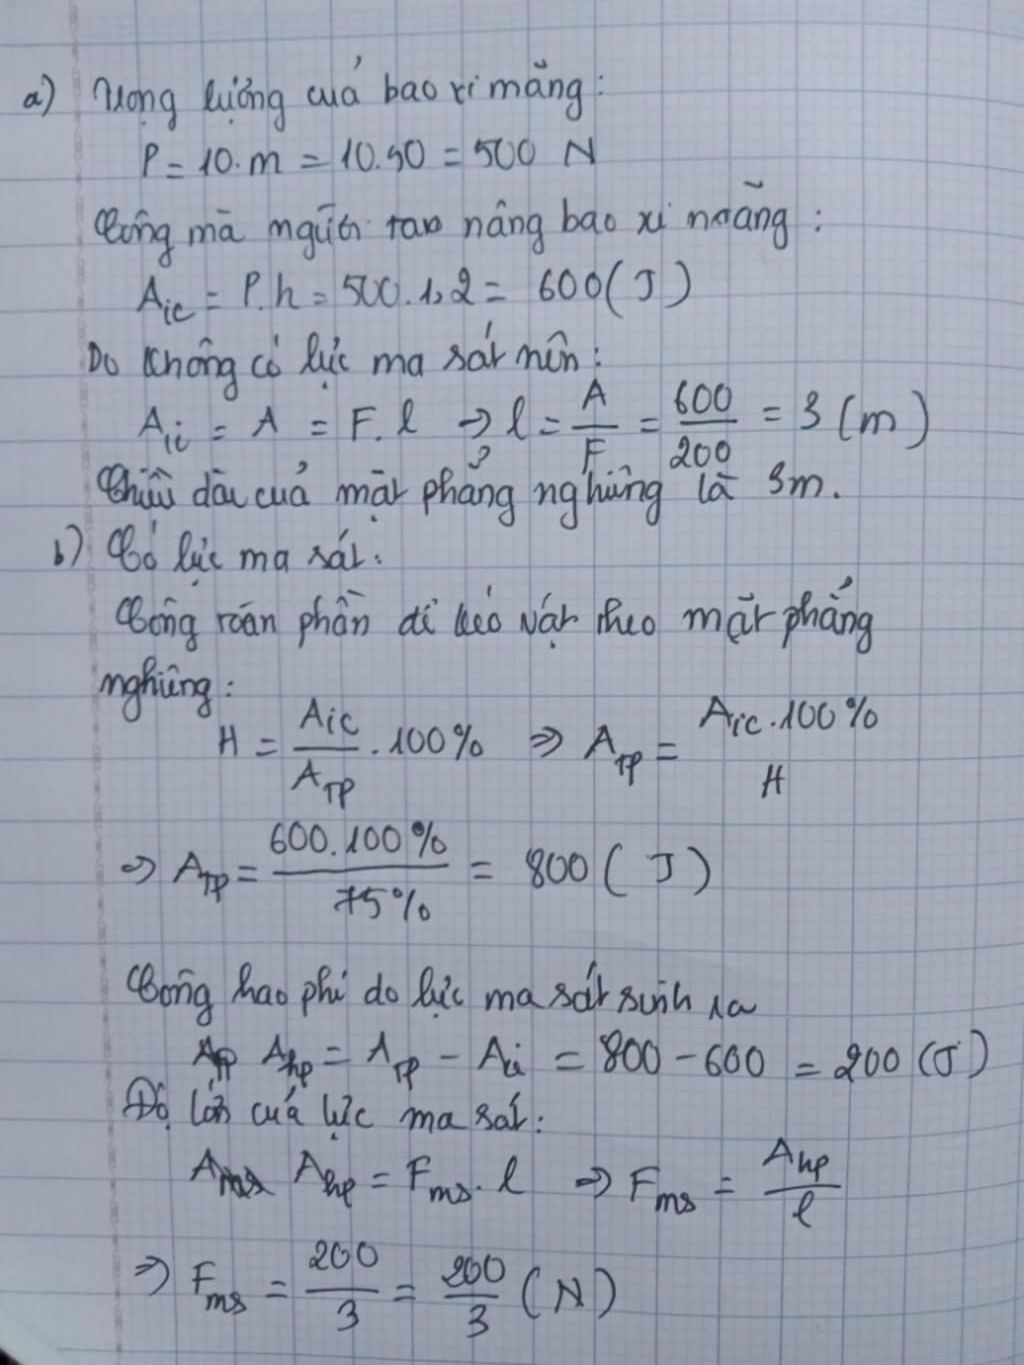 a) Trọng lượng của bao xi măng:
P = 10.m = 10.50 = 500 N
Công mà người ta nâng bao xi măng:
Aic = P.h = 500.1,2 = 600 (J)
Do không có lực ma sát nên:
Aic = A = F.l → l = A/F = 600/200 = 3 (m)
Chiều dài của mặt phẳng nghiêng là 3m.
b) Có lực ma sát:
Công toàn phần để kéo vật theo mặt phẳng
nghiêng:
H = Aic/ATP . 100% ⇒ ATP = Aic.100%/H
⇒ ATP = 600.100%/75% = 800 (J)
Công hao phí do lực ma sát sinh ra
Ahp = ATP - Ai = 800 - 600 = 200 (J)
Độ lớn của lực ma sát:
Ahp = Fms.l ⇒ Fms = Ahp/l
⇒ Fms = 200/3 = 200/3 (N)